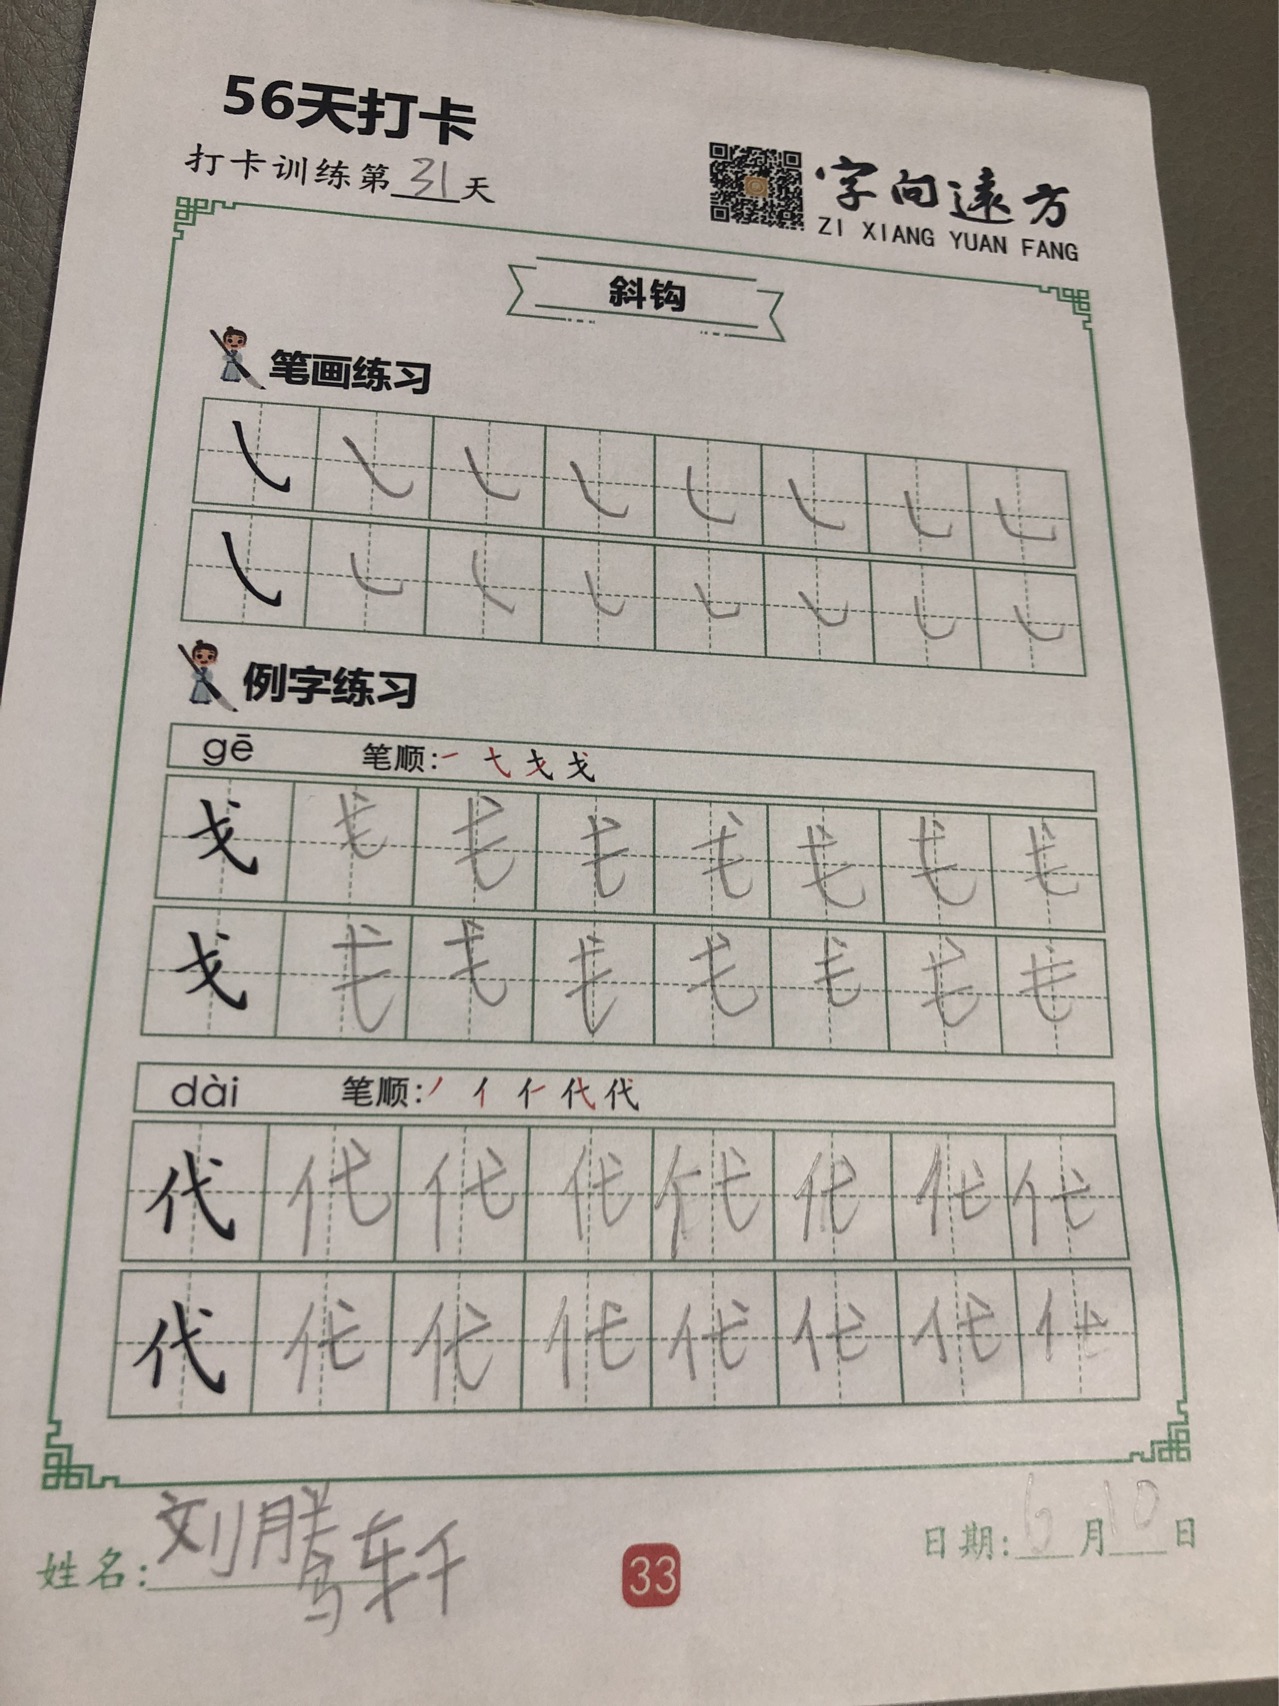 56天打卡
打卡训练第31天
字向遠方
ZI XIANG YUAN FANG
斜钩
笔画练习
㇂ ㇂ ㇂ ㇂ ㇂ ㇂ ㇂ ㇂
㇂ ㇂ ㇂ ㇂ ㇂ ㇂ ㇂ ㇂
例字练习
gē 笔顺:一 弋 戈 戈
戈 戈 戈 戈 戈 戈 戈 戈
戈 戈 戈 戈 戈 戈 戈 戈
dài 笔顺:丿 亻 仁 代 代
代 代 代 代 代 代 代 代
代 代 代 代 代 代 代 代
姓名:刘腾轩
33
日期:6月10日